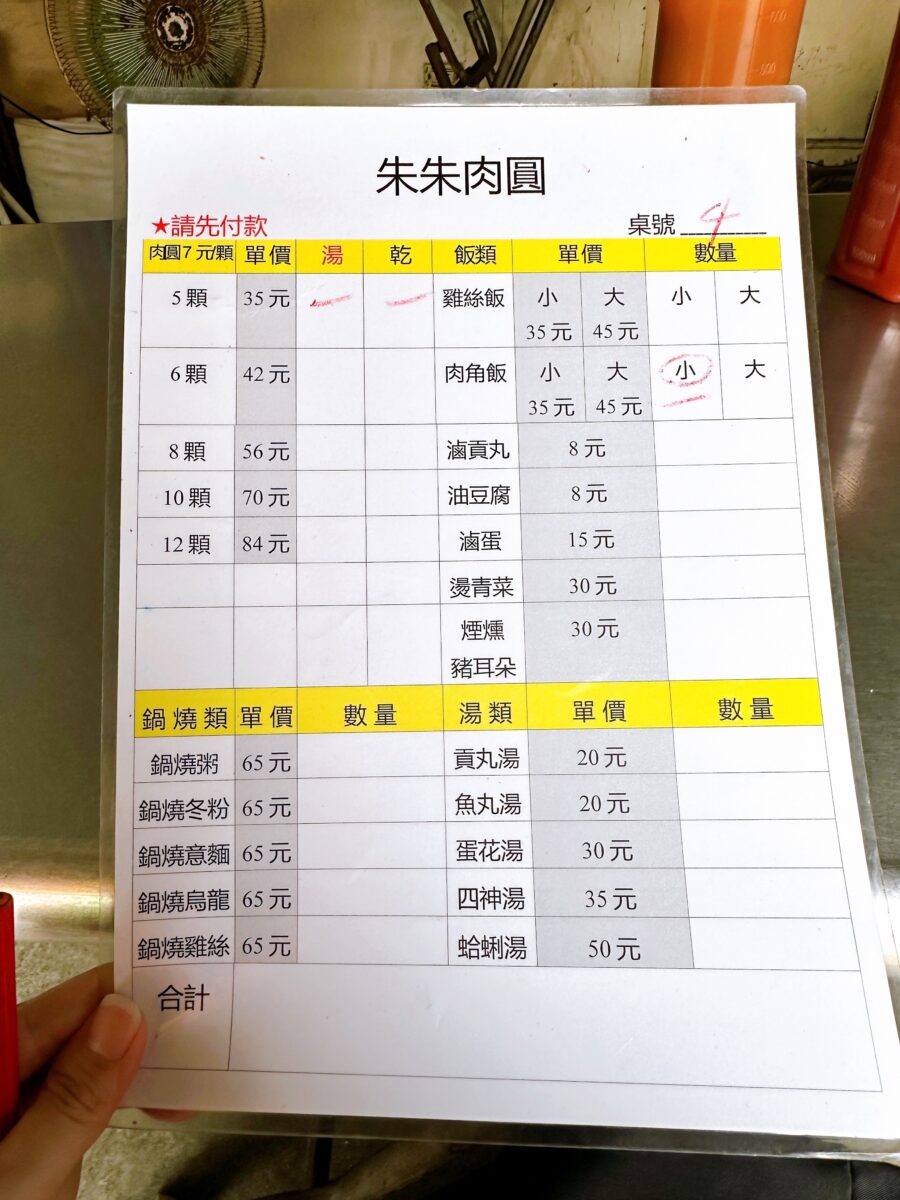 朱朱肉圓
★請先付款 桌號 4
肉圓7元/顆 單價 湯 乾 飯類 單價 數量
5顆 35元 一 一 雞絲飯 小 35元 大 45元 小 大
6顆 42元 肉角飯 小 35元 大 45元 小 一 大
8顆 56元 滷貢丸 8元
10顆 70元 油豆腐 8元
12顆 84元 滷蛋 15元
燙青菜 30元
煙燻 30元
豬耳朵
鍋燒類 單價 數量 湯類 單價 數量
鍋燒粥 65元 貢丸湯 20元
鍋燒冬粉 65元 魚丸湯 20元
鍋燒意麵 65元 蛋花湯 30元
鍋燒烏龍 65元 四神湯 35元
鍋燒雞絲 65元 蛤蜊湯 50元
合計